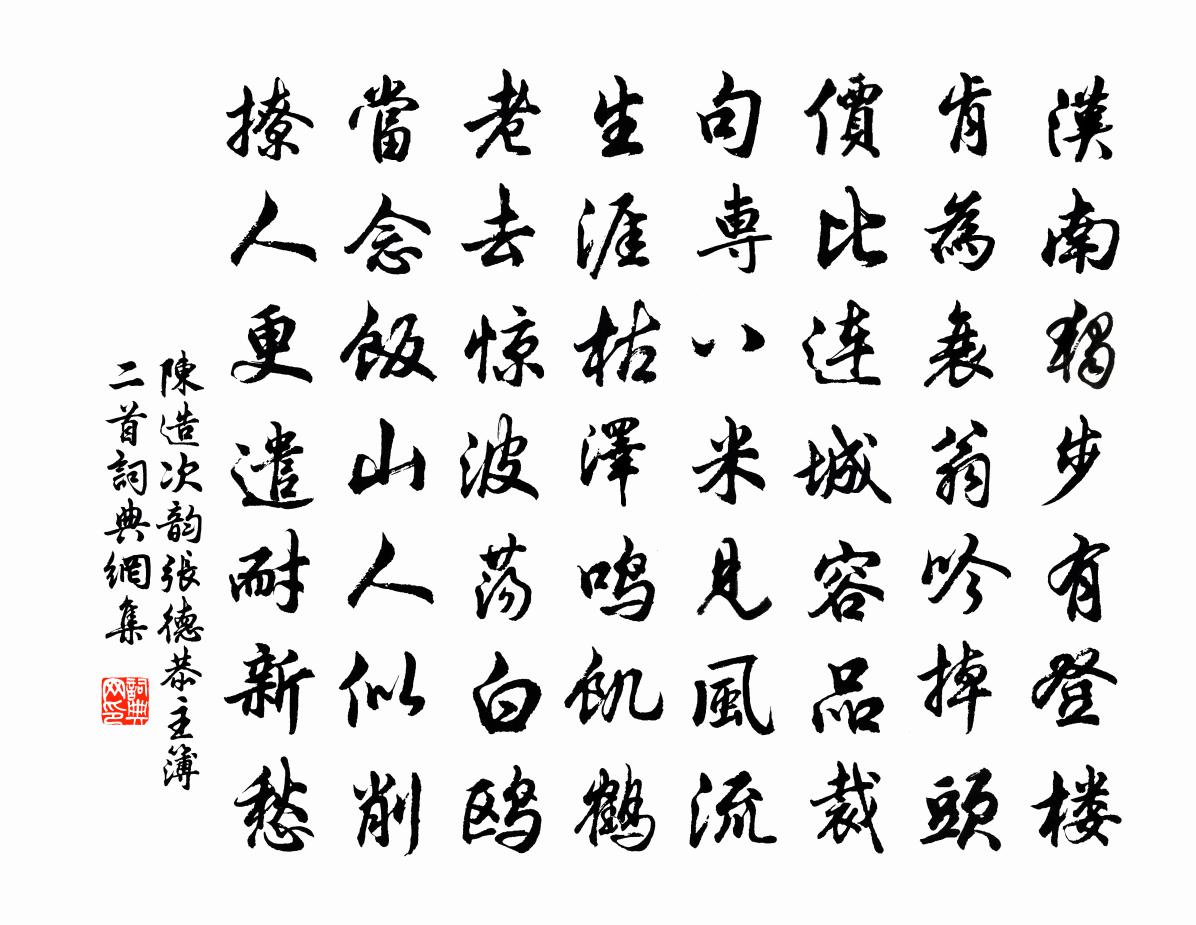 漢南獨步有登楼
肯為衰翁吟掉頭
價比連城容品裁
句専八米見風流
生涯枯澤鸣飢鶴
老去惊波荡白鸥
當念飯山人似削
撩人更遣耐新愁
陳造次韵張德恭主簿
二首詞典網集
詞典网印